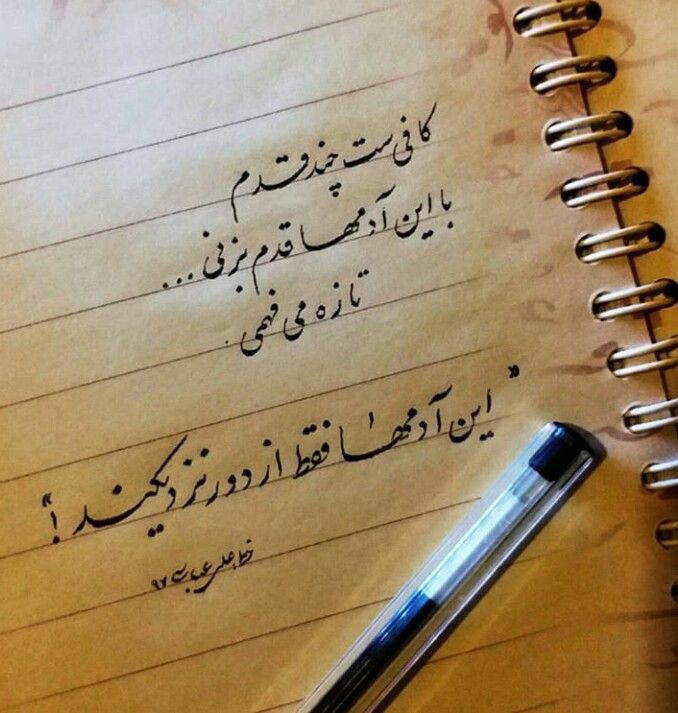 کافی ست چند قدم
با این آدمها قدم بزنی ...
تازه می فهمی .
"این آدمها فقط از دور نزدیکند !"
خط علی عبادی ۹۶